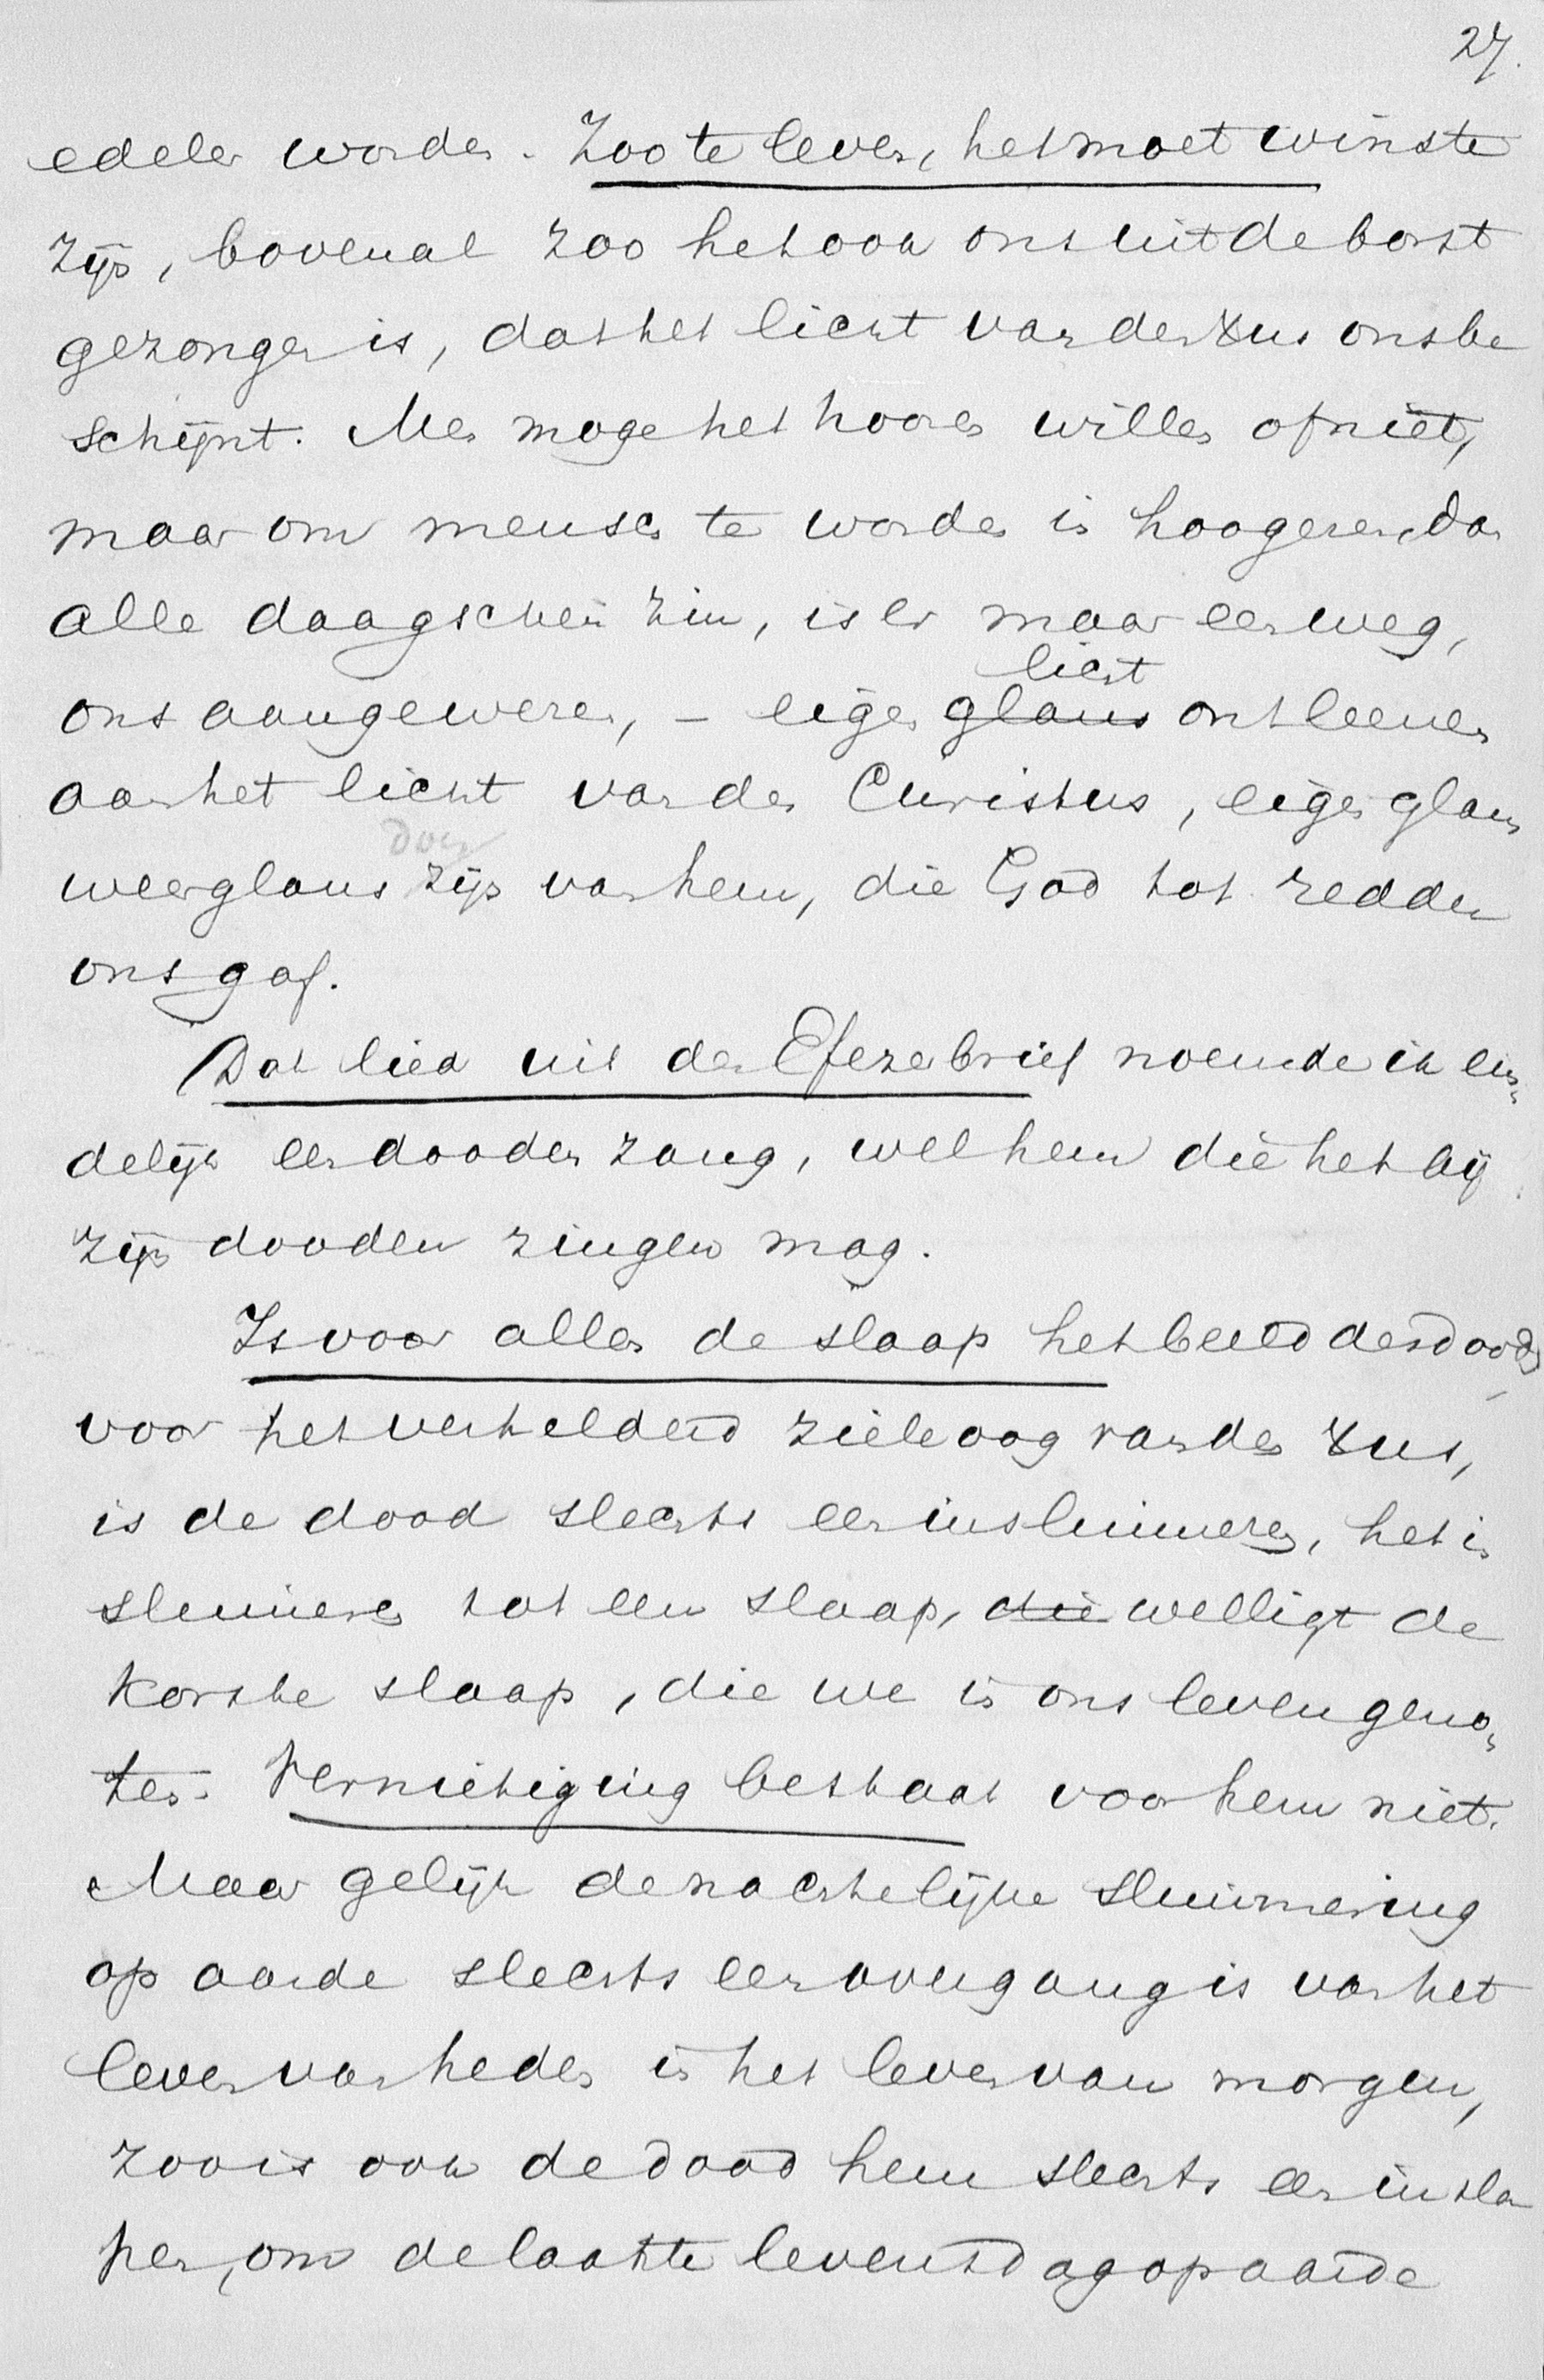 27.
edeler worden. Zoo te leven, het moet winste
zijn, bovenal zoo het ook ons uit de borst
gezongen is, dat het licht van den Xus ons be
schijnt. Men moge het hooren willen of niet,
maar om mensch te worden in hoogeren, dan
alle daagschen zin, is er maar een weg,
licht
ons aangewezen, – eigen glans ontleenen
aan het licht van den Christus, eigen glans
doen
weerglans zijn van hem, die God tot redder
ons gaf.
Dat lied uit den Efezerbrief noemde ik ein„
delijk een dooden zang, wel hem die het bij
zijn dooden zingen mag.
Is voor allen de slaap het beeld des doods
voor het verhelderd zieleoog van den Xus,
is de dood slechts een insluimeren, het in
sluimeren tot een slaap, die welligt de
korste slaap, die we in ons leven geno„
ten. Vernietiging bestaat voor hem niet.
Maar gelijk de nachtelijke sluimering
op aarde slechts een overgang is van het
leven van heden in het leven van morgen,
zoo is ook de dood hem slechts een insla
pen, om de laatste levensdag op aarde